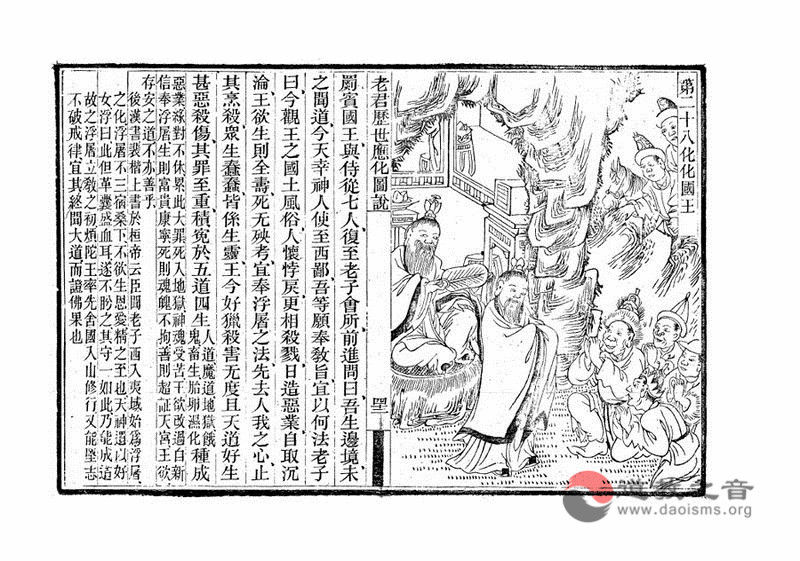 第二十八化化國王
老君歷世應化圖說
罽賓國王與侍從七人復至老子會所前進問曰吾生邊境未
之聞道今天幸神人使至西鄙吾等願奉敎旨宜以何法老子
曰今觀王之國土風俗人懷悖戾更相殺戮日造惡業自取沉
淪王欲生則全壽死无殃考宜奉浮屠之法先去人我之心止
其烹殺衆生蠢蠢皆係生靈王今好獵殺害无度且天道好生
甚惡殺傷其罪至重積冤於五道四生人道魔道地獄餓鬼畜生胎卵濕化種成
惡業緣對不休累此大罪死入地獄神魂受苦王欲改過自新
信奉浮屠生則富貴康寧死則魂魄不拘善則超証天宮王欲
存安之道不亦善乎
後漢書裴楷上書於桓帝云臣聞老子西入夷域始爲浮屠
之化浮屠不三宿桑下不欲生恩愛精之至也天神遺以好
女浮曰此但革囊盛血耳遂不盻之其守一如此乃能成道
故之浮屠立敎之初煩陀王率先舍國入山修行又能堅志
不破戒律宜其終聞大道而證佛果也
道敎之音
www.daoisms.org